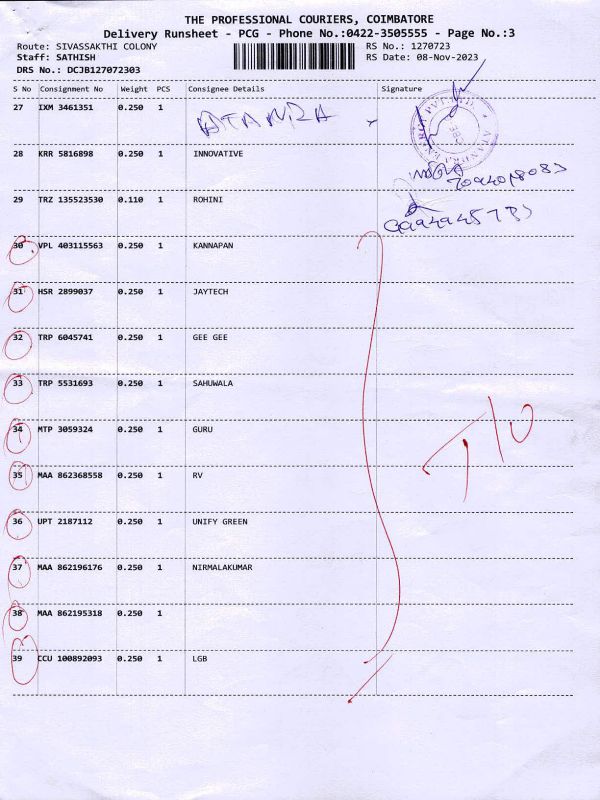 THE PROFESSIONAL COURIERS, COIMBATORE
Delivery Runsheet - PCG - Phone No.:0422-3505555 - Page No.:3
Route: SIVASSAKTHI COLONY RS No.: 1270723
Staff: SATHISH RS Date: 08-Nov-2023
DRS No.: DCJB127072303
S No Consignment No Weight PCS Consignee Details Signature
27 IXM 3461351 0.250 1
28 KRR 5816898 0.250 1 INNOVATIVE
29 TRZ 135523530 0.110 1 ROHINI
30 VPL 403115563 0.250 1 KANNAPAN
31 HSR 2899037 0.250 1 JAYTECH
32 TRP 6045741 0.250 1 GEE GEE
33 TRP 5531693 0.250 1 SAHUWALA
34 MTP 3059324 0.250 1 GURU
35 MAA 862368558 0.250 1 RV
36 UPT 2187112 0.250 1 UNIFY GREEN
37 MAA 862196176 0.250 1 NIRMALAKUMAR
38 MAA 862195318 0.250 1
39 CCU 100892093 0.250 1 LGB